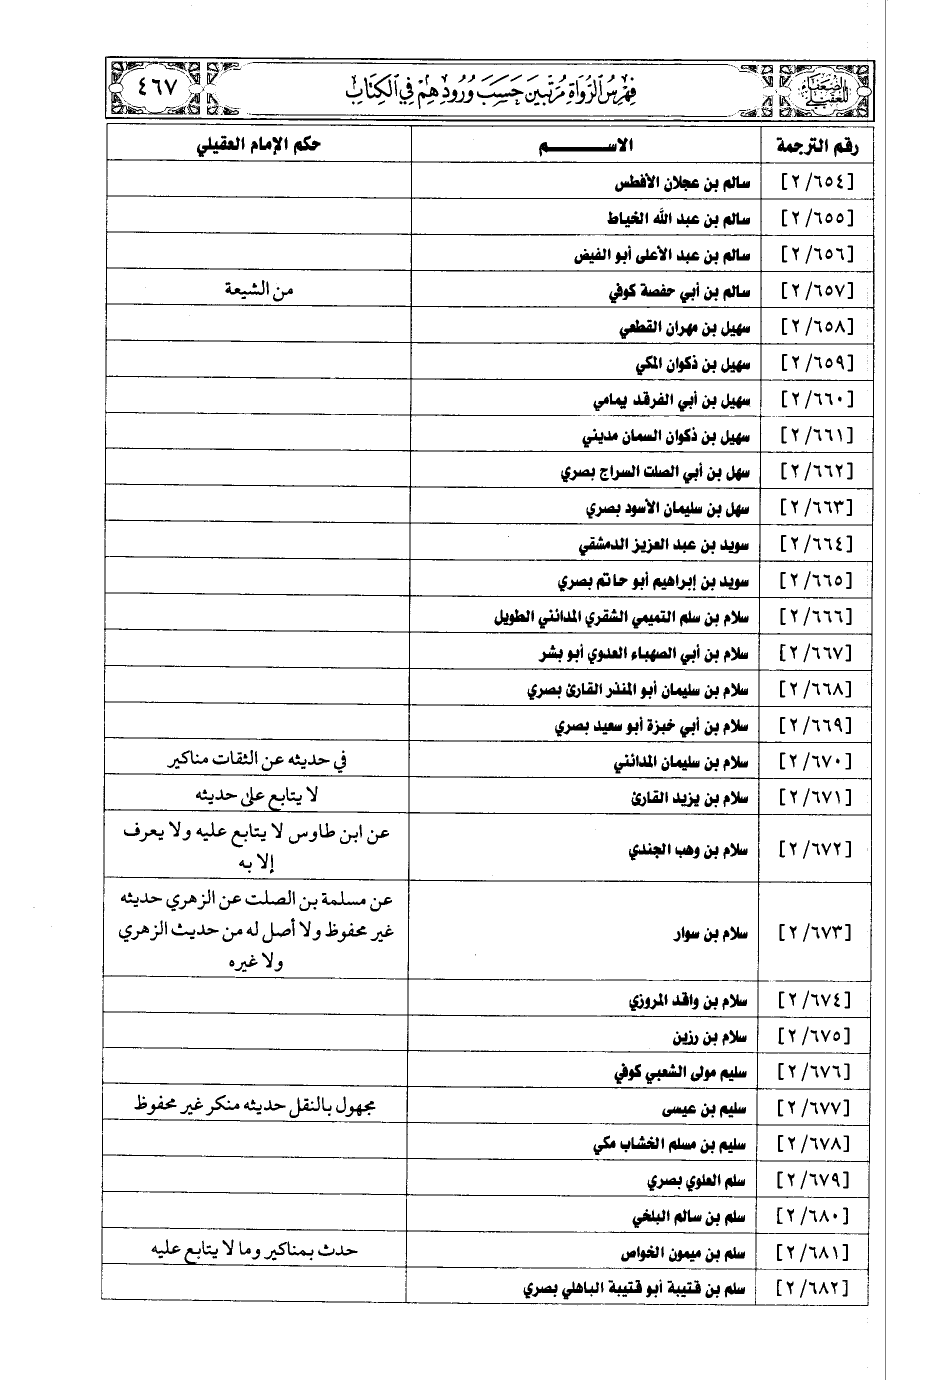 الضعفاء للعقيلي
فهرس الرواة مرتبين حسب ورودهم في الكتاب
٤٦٧
رقم الترجمة الاســـــم حكم الإمام العقيلي
[٢/٦٥٤] سالم بن عجلان الأفطس
[٢/٦٥٥] سالم بن عبد الله الخياط
[٢/٦٥٦] سالم بن عبد الأعلى أبو الفيض
[٢/٦٥٧] سالم بن أبي حفصة كوفي من الشيعة
[٢/٦٥٨] سهيل بن مهران القطعي
[٢/٦٥٩] سهيل بن ذكوان المكي
[٢/٦٦٠] سهيل بن أبي الفرقد يمامي
[٢/٦٦١] سهيل بن ذكوان السمان مديني
[٢/٦٦٢] سهل بن أبي الصلت السراج بصري
[٢/٦٦٣] سهل بن سليمان الأسود بصري
[٢/٦٦٤] سويد بن عبد العزيز الدمشقي
[٢/٦٦٥] سويد بن إبراهيم أبو حاتم بصري
[٢/٦٦٦] سلام بن سلم التميمي الشقري المدائني الطويل
[٢/٦٦٧] سلام بن أبي الصهباء العدوي أبو بشر
[٢/٦٦٨] سلام بن سليمان أبو المنذر القارئ بصري
[٢/٦٦٩] سلام بن أبي خبزة أبو سعيد بصري
[٢/٦٧٠] سلام بن سليمان المدائني في حديثه عن الثقات مناكير
[٢/٦٧١] سلام بن يزيد القارئ لا يتابع على حديثه
[٢/٦٧٢] سلام بن وهب الجندي عن ابن طاوس لا يتابع عليه ولا يعرف
إلا به
[٢/٦٧٣] سلام بن سوار عن مسلمة بن الصلت عن الزهري حديثه
غير محفوظ ولا أصل له من حديث الزهري
ولا غيره
[٢/٦٧٤] سلام بن واقد المروزي
[٢/٦٧٥] سلام بن رزين
[٢/٦٧٦] سليم مولى الشعبي كوفي
[٢/٦٧٧] سليم بن عيسى مجهول بالنقل حديثه منكر غير محفوظ
[٢/٦٧٨] سليم بن مسلم الخشاب مكي
[٢/٦٧٩] سلم العلوي بصري
[٢/٦٨٠] سلم بن سالم البلخي
[٢/٦٨١] سلم بن ميمون الخواص حدث بمناكير وما لا يتابع عليه
[٢/٦٨٢] سلم بن قتيبة أبو قتيبة الباهلي بصري